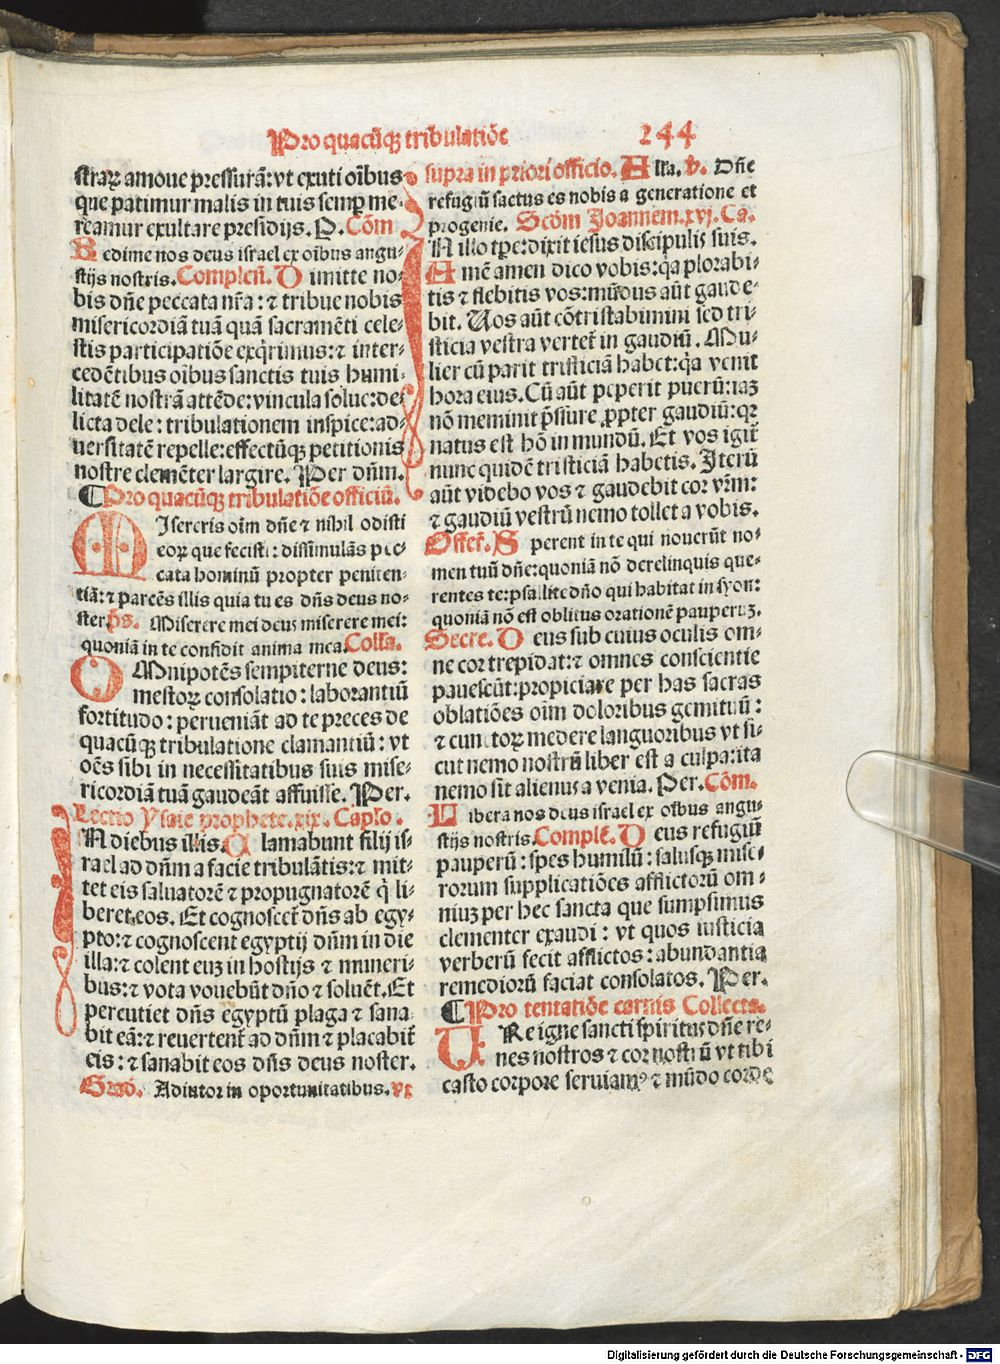 Pro quacūqꝫ tribulatiōe 244
ſtraꝝ amoue preſſurā: vt exuti oībus
que patimur malis in tuis ſemꝑ me-
reamur exultare preſidijs. P. Cōm
Redime nos deus iſrael ex oībus angu-
ſtijs noſtris. Complen̄. Dimitte no-
bis dn̄e peccata nr̄a: ⁊ tribue nobis
miſericordiā tuā quā ſacramēti cele-
ſtis participatiōe exq̇rimus: ⁊ inter-
cedētibus oībus ſanctis tuis humi-
litatē noſtrā attēde: vincula ſolue: de-
licta dele: tribulationem inſpice: ad-
uerſitatē repelle: effectūqꝫ petitionis
noſtre clemēter largire. Per dn̄m.
¶ Pro quacūqꝫ tribulatiōe officiū.
MIſereris oīm dn̄e ⁊ nihil odiſti
eoꝝ que feciſti: diſſimulās pec-
cata hominū propter peniten-
tiā: ⁊ parcēs illis quia tu es dn̄s deus no-
ſter. p̄s. Miſerere mei deus miſerere mei:
quoniā in te confidit anima mea. Coll̄a.
OMnipotēs ſempiterne deus:
meſtoꝝ conſolatio: laborantiū
fortitudo: perueniāt ad te preces de
quacūqꝫ tribulatione clamantiū: vt
oēs ſibi in neceſſitatibus ſuis miſe-
ricordiā tuā gaudeāt affuiſſe. Per.
Lectio Yſaie prophete. xix. Caplo.
IN diebus illis. Clamabunt filij iſ-
rael ad dn̄m a facie tribulātis: ⁊ mit-
tet eis ſaluatorē ⁊ propugnatorē q̇ li-
beret eos. Et cognoſcet̄ dn̄s ab egy-
pto: ⁊ cognoſcent egyptij dn̄m in die
illa: ⁊ colent euꝫ in hoſtijs ⁊ muneri-
bus: ⁊ vota vouebūt dn̄o ⁊ ſoluēt. Et
percutiet dn̄s egyptū plaga ⁊ ſana
bit eā: ⁊ reuertent̄ ad dn̄m ⁊ placabit̄
eis: ⁊ ſanabit eos dn̄s deus noſter.
Grad. Adiutor in oportunitatibus. vt
ſupra in priori officio. Alla. v. Dn̄e
refugiū factus es nobis a generatione et
progenie. Scḋm Joannem. xvj. Ca.
IN illo tꝑe: dixit ieſus diſcipulis ſuis.
Amē amen dico vobis: qa plorabi-
tis ⁊ flebitis vos: mūdus aūt gaude-
bit. Uos aūt cōtriſtabimini ſed tri-
ſticia veſtra vertet̄ in gaudiū. Mu-
lier cū parit triſticiā habet: qa venit
hora eius. Cū aūt peperit puerū: iaꝫ
nō meminit p̄ſſure ꝓpter gaudiū: qꝛ
natus eſt hō in mundū. Et vos igit̄
nunc quidē triſticiā habetis. Iterū
aūt videbo vos ⁊ gaudebit cor vr̄m:
⁊ gaudiū veſtrū nemo tollet a vobis.
Offer̄. Sperent in te qui nouerūt no-
men tuū dn̄e: quoniā nō derelinquis que-
rentes te: pſallite dn̄o qui habitat in ſyon:
quoniā nō eſt oblitus orationē pauperuꝫ.
Secre. Deus ſub cuius oculis om-
ne cor trepidat: ⁊ omnes conſcientie
paueſcūt: propiciare per has ſacras
oblatiōes oīm doloribus gemituū:
⁊ cunctoꝝ medere languoribus vt ſi-
cut nemo noſtrū liber eſt a culpa: ita
nemo ſit alienus a venia. Per. Cōm.
Libera nos deus iſrael ex oībus angu-
ſtijs noſtris. Complē. Deus refugiū
pauperū: ſpes humiliū: ſaluſqꝫ miſe-
rorum ſupplicatiōes afflictorū om-
niuꝫ per hec ſancta que ſumpſimus
clementer exaudi: vt quos iuſticia
verberū fecit afflictos: abundantia
remediorū faciat conſolatos. Per.
¶ Pro tentatiōe carnis Collecta.
URe igne ſancti ſpiritus dn̄e re-
nes noſtros ⁊ cor noſtrū vt tibi
caſto corpore ſeruiamꝰ ⁊ mūdo corde
Digitalisierung gefördert durch die Deutsche Forschungsgemeinschaft - DFG